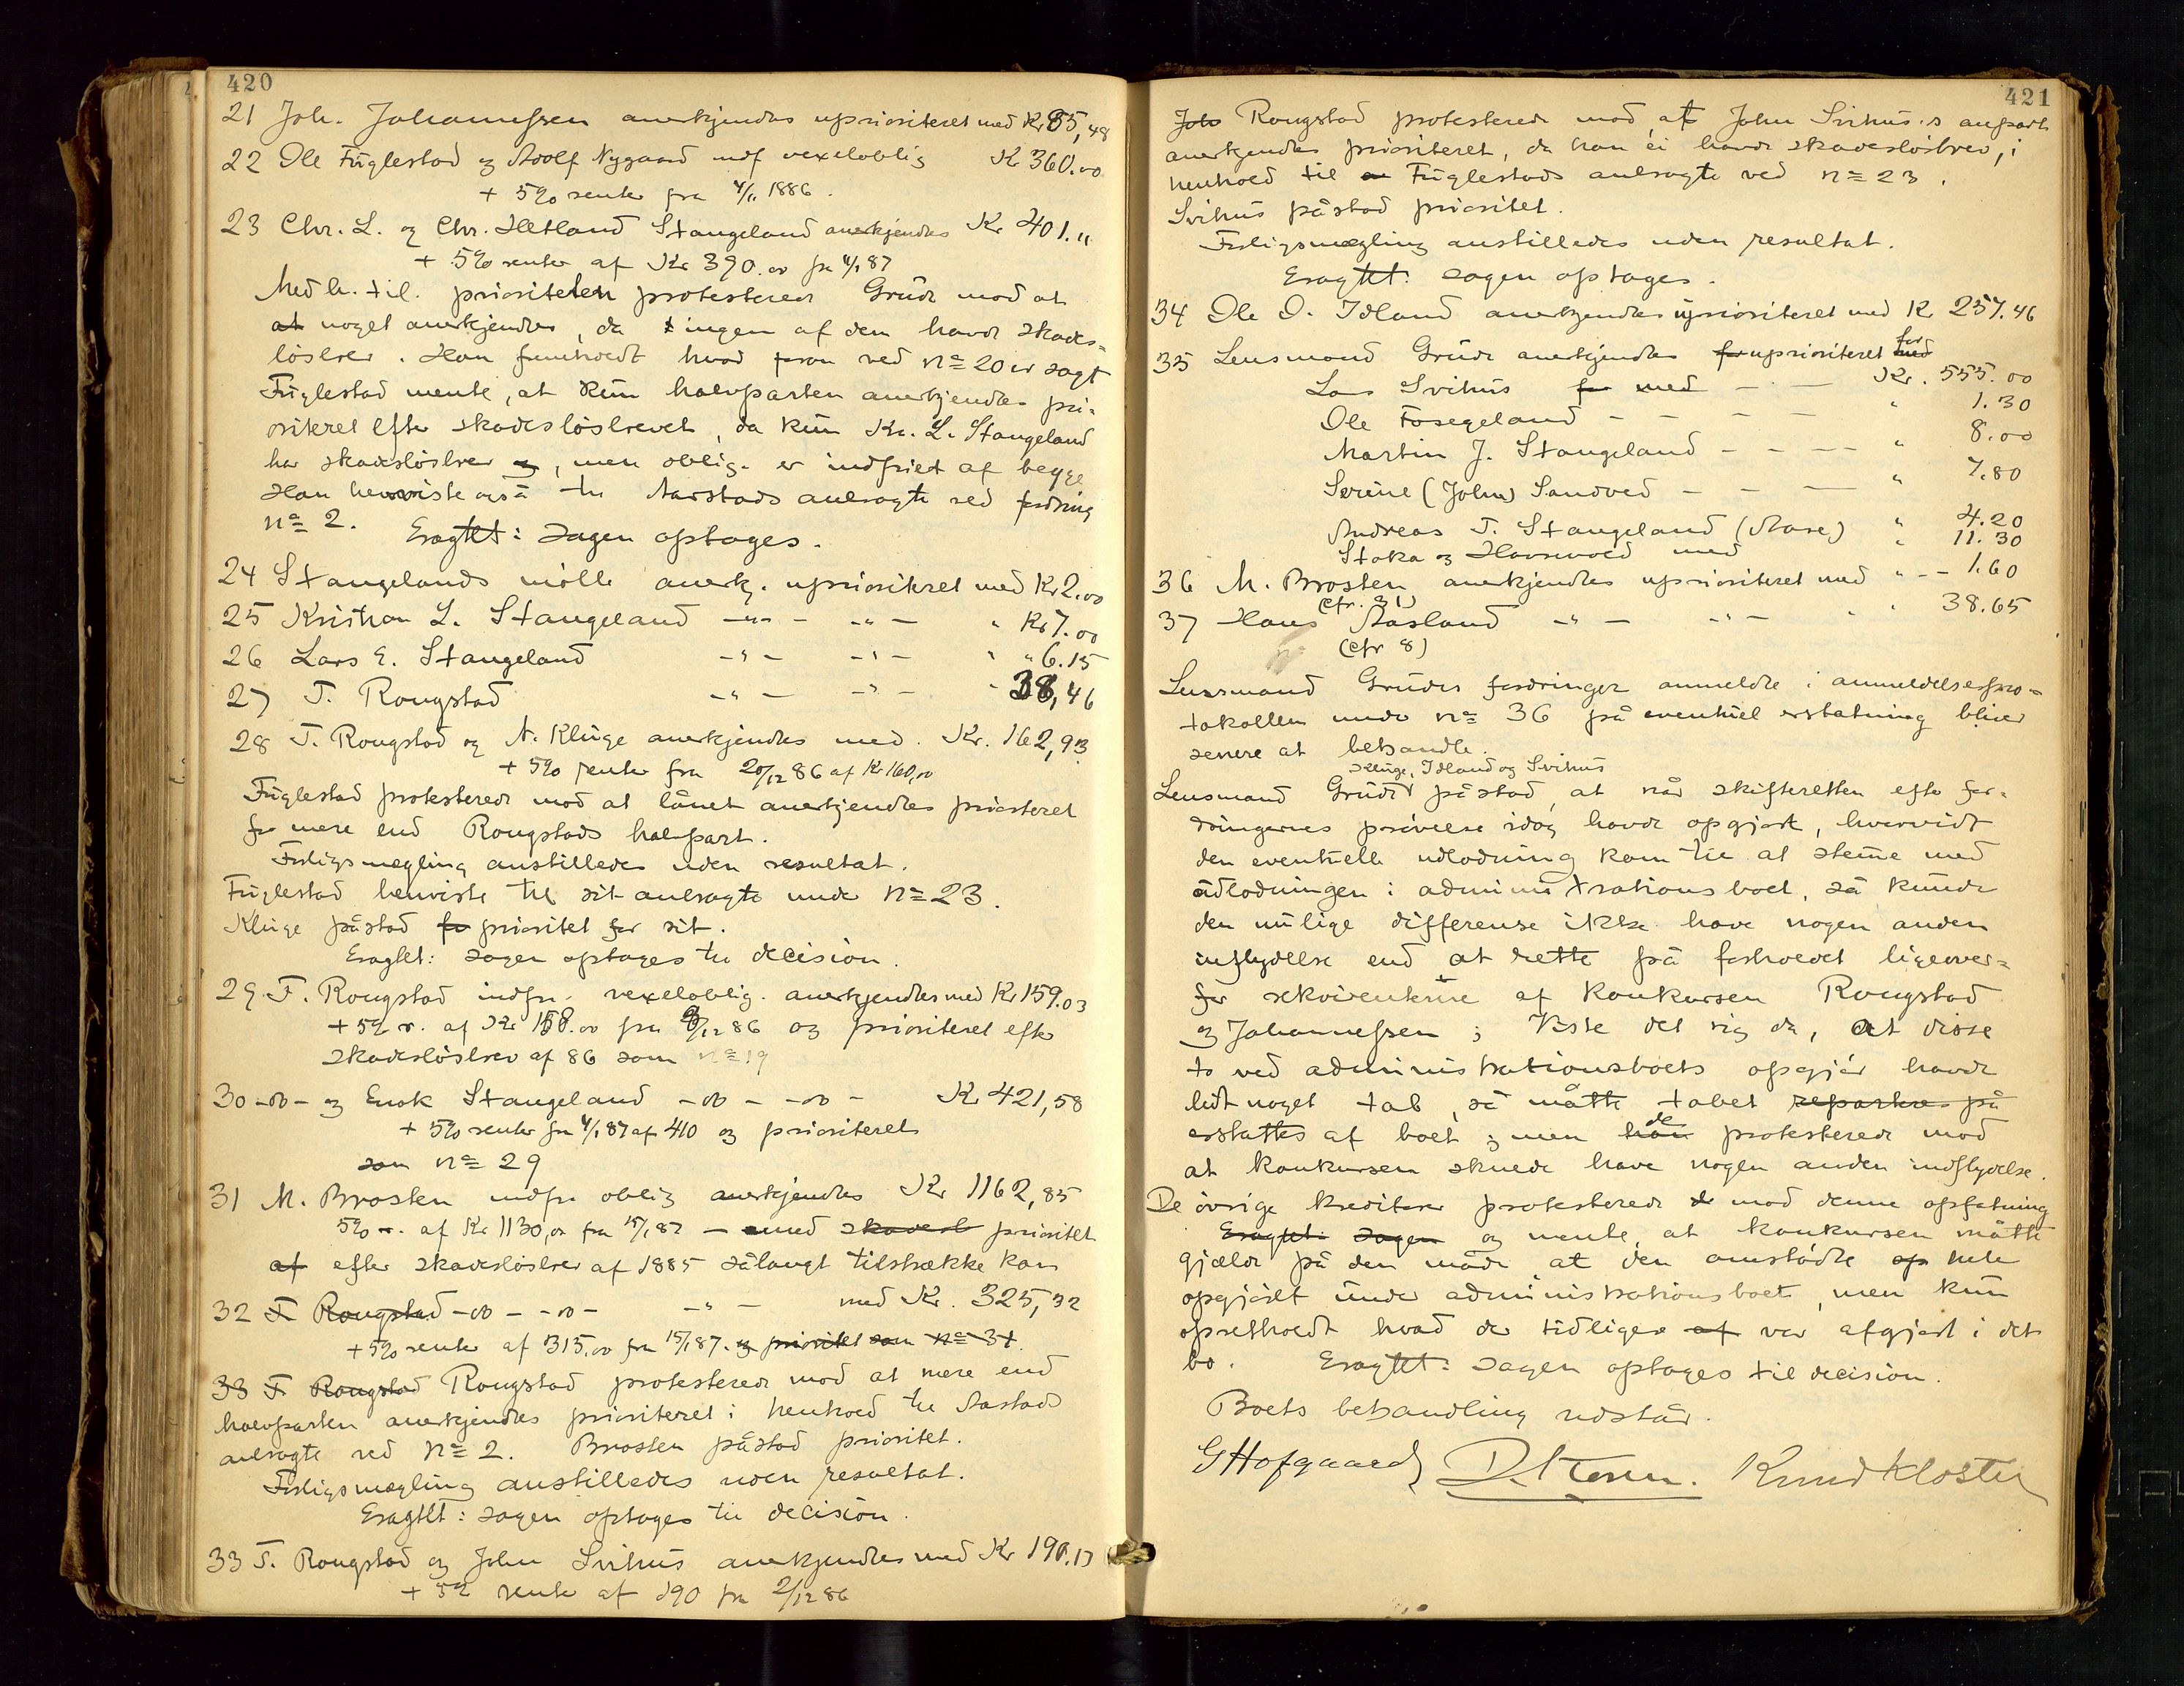 420
21 Joh. Johannessen anerkjendes uprioriteret med Kr 85,48
22 Ole Fuglestad og Adolf Nygaard indf vexeloblig Kr 360.00
+ 5% renter fra 4/11 1886.
23 Chr. L. og Chr. Hetland Stangeland anerkjendes Kr 401.11
+ 5% renter af Kr 390.00 fra 4/1 87
Med h. til. prioriteten protesterede Grude mod at
at noget anerkjendtes, da ingen af dem havde skades=
løsbrev. Han fremholdt hvad foran ved no 20 er sagt
Fuglestad mente, at kun halvparten anerkjendtes pri=
oriteret efter skadesløsbrevet, da kun Kr. L. Stangeland
har skadesløsbrev og, men oblig. er indfriet af begge
Han henviste også til Aarstads anbragte ved fordring
no 2. Eragtet: Sagen optages.
24 Stangelands mølle anerkj. uprioriteret med Kr 2.00
25 Kristian L. Stangeland -"- -"- " Kr 7.00
26 Lars E. Stangeland -"- -"- " " 6.15
27 T. Rongstad -"- -"- " 38,46
28 T. Rongstad og A. Kluge anerkjendtes med. Kr. 162,93
+ 5% renter fra 20/12 86 af Kr 160,00
Fuglestad protesterede mod at lånet anerkjendtes prioriteret
for mere end Rongstads halvpart.
Forligsmægling anstilledes uden resultat.
Fuglestad henviste til sit anbragte under no 23.
Kluge påstod for prioritet for sit.
Eragtet: sagen optages til decision.
29 T. Rongstad indfr. vexeloblig. anerkjendtes med Kr 159.03
+ 5% r. af Kr 158.00 fra 9/12 86 og prioriteret efter
skadesløsbrev af 86 som no 19
30 -do- og Enok Stangeland -do- -do- Kr 421,58
+ 5% renter fra 4/1 87 af 410 og prioriteret
som no 29
31 M. Brosten indfr. oblig anerkjendtes Kr 1162,85
5% r. af Kr 1130,00 fra 15/1 87 - med skadesl prioritet
af efter skadesløsbrev af 1885 sålangt tilstrække kan
32 T Rongstad -do- -do- -"- med Kr. 325,32
+ 5% renter af 315,00 fra 15/1 87. og prioritet som no 31.
33 T Rongstad Rongstad protesterede mod at mere end
halvparten anerkjendtes prioriteret i henhold til Aastads
anbragte ved no 2. Brosten påstod prioritet.
Forligsmægling anstilledes uden resultat.
Eragtet: sagen optages til decision.
33 T. Rongstad og John Svihus anerkjendtes med Kr 190.17
+ 5% rente af 190 fra 2/12 86
421
Joh Rongstad protesterede mod, at John Svihus's anpart
anerkjendtes prioriteret, da han ei havde skadesløsbrev, i
henhold til Fuglestads anbragte ved no 23.
Svihus påstod prioritet.
Forligsmægling anstilledes uden resultat.
Eragtet: sagen optages.
34 Ole O. Idland anerkjendtes uprioriteret med Kr 257.46
35 Lensmand Grude anerkjendtes for uprioriteret med for
Lars Svihus for med - - Kr. 555.00
Ole Fosegeland - - - - " 1.30
Martin J. Stangeland - - - - " 8.00
Serine (John) Sandved - - - " 7.80
Andreas T. Stangeland (Aase) " 4.20
Stoka og Hovsmoed med " 11.30
36 M. Brosten anerkjendtes uprioriteret med " - - 1.60
(cfr. 31)
37 Hans Aasland -"- -"- " " 38.65
(cfr 8)
Lensmand Grudes fordringer anmeldte i anmeldelsespro=
tokollen under no 36 på eventuel erstatning bliver
senere at behandle.
Kluge, Idland og Svihus
Lensmand Grude påstod, at når skifteretten efter for=
dringernes prøvelse idag havde opgjort, hvorvidt
den eventuelle udlodning kom til at stemme med
udlodningen i administrationsboet, så kunde
den mulige differense ikke have nogen anden
indflydelse end at rette på forholdet ligeover=
for rekvirenterne af konkursen Rongstad
og Johannessen; Viste det sig da, at disse
to ved administrationsboets opgjør havde
lidt noget tab, så måtte tabet repartere på
erstattes af boet; men han de protesterede mod
at konkursen skulde have nogen anden indflydelse.
De øvrige kreditorer protesterede de mod denne opfatning
Eragtet: sagen og mente, at konkursen måtte
gjælde på den måde at den omstødte op hele
opgjøret under administrationsboet, men kun
opretholdt hvad der tidligere af var afgjort i det
bo. Eragtet: Sagen optages til decision.
Boets behandling udstår.
GHofgaard Knud Kloster